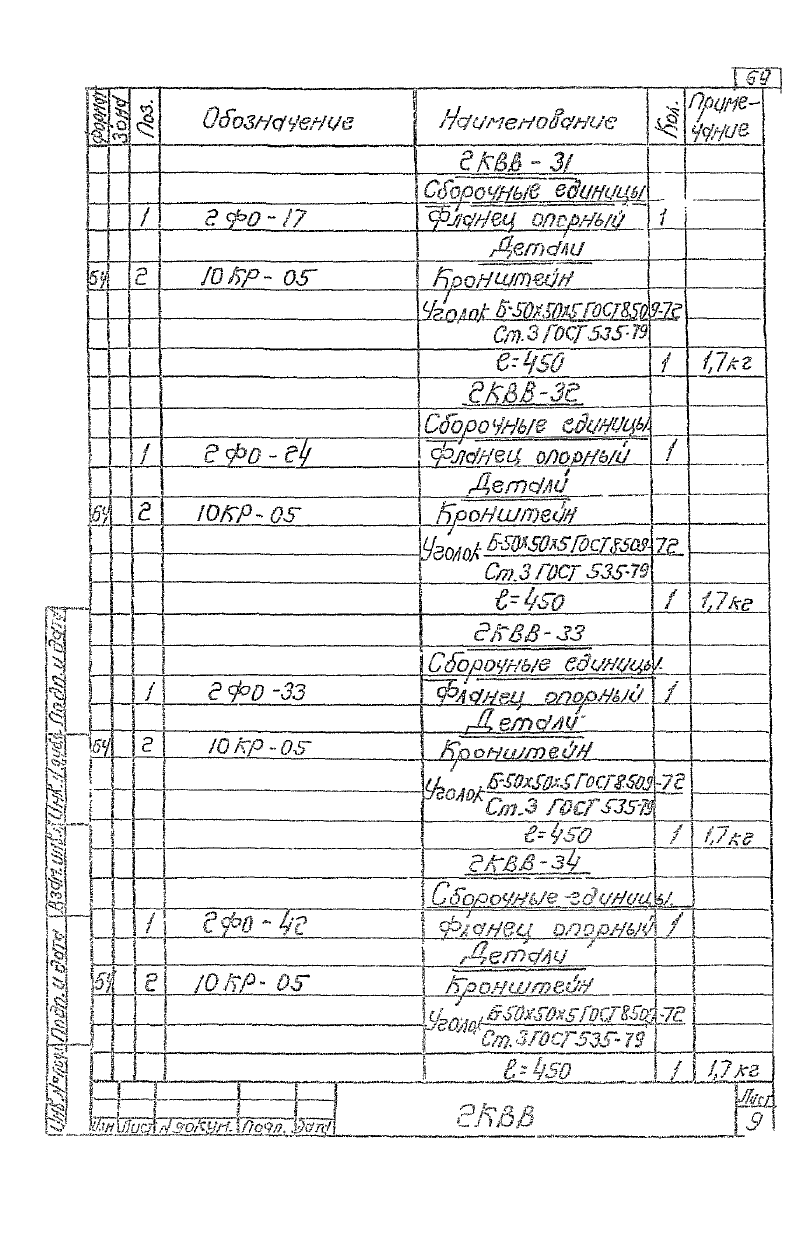 69
Формат Зона Поз. Обозначение Наименование Кол. Приме-
чание
2КВВ-31
Сборочные единицы
1 2ФО-17 Фланец опорный 1
Детали
БЧ 2 10КР-05 Кронштейн
Уголок Б-50х50х5 ГОСТ 8509-72
Ст.3 ГОСТ 535-79
ℓ=450 1 1,7кг
2КВВ-32
Сборочные единицы
1 2ФО-24 Фланец опорный 1
Детали
БЧ 2 10КР-05 Кронштейн
Уголок Б-50х50х5 ГОСТ 8509-72
Ст.3 ГОСТ 535-79
ℓ=450 1 1,7кг
2КВВ-33
Сборочные единицы
1 2ФО-33 Фланец опорный 1
Детали
БЧ 2 10КР-05 Кронштейн
Уголок Б-50х50х5 ГОСТ 8509-72
Ст.3 ГОСТ 535-79
ℓ=450 1 1,7кг
2КВВ-34
Сборочные единицы
1 2ФО-42 Фланец опорный 1
Детали
БЧ 2 10КР-05 Кронштейн
Уголок Б-50х50х5 ГОСТ 8509-72
Ст.3 ГОСТ 535-79
ℓ=450 1 1,7кг
Инв.№подл. Подп. и дата Взам. инв.№ Инв.№дубл. Подп. и дата
Изм Лист N докум. Подп. Дата
2КВВ
Лист
9